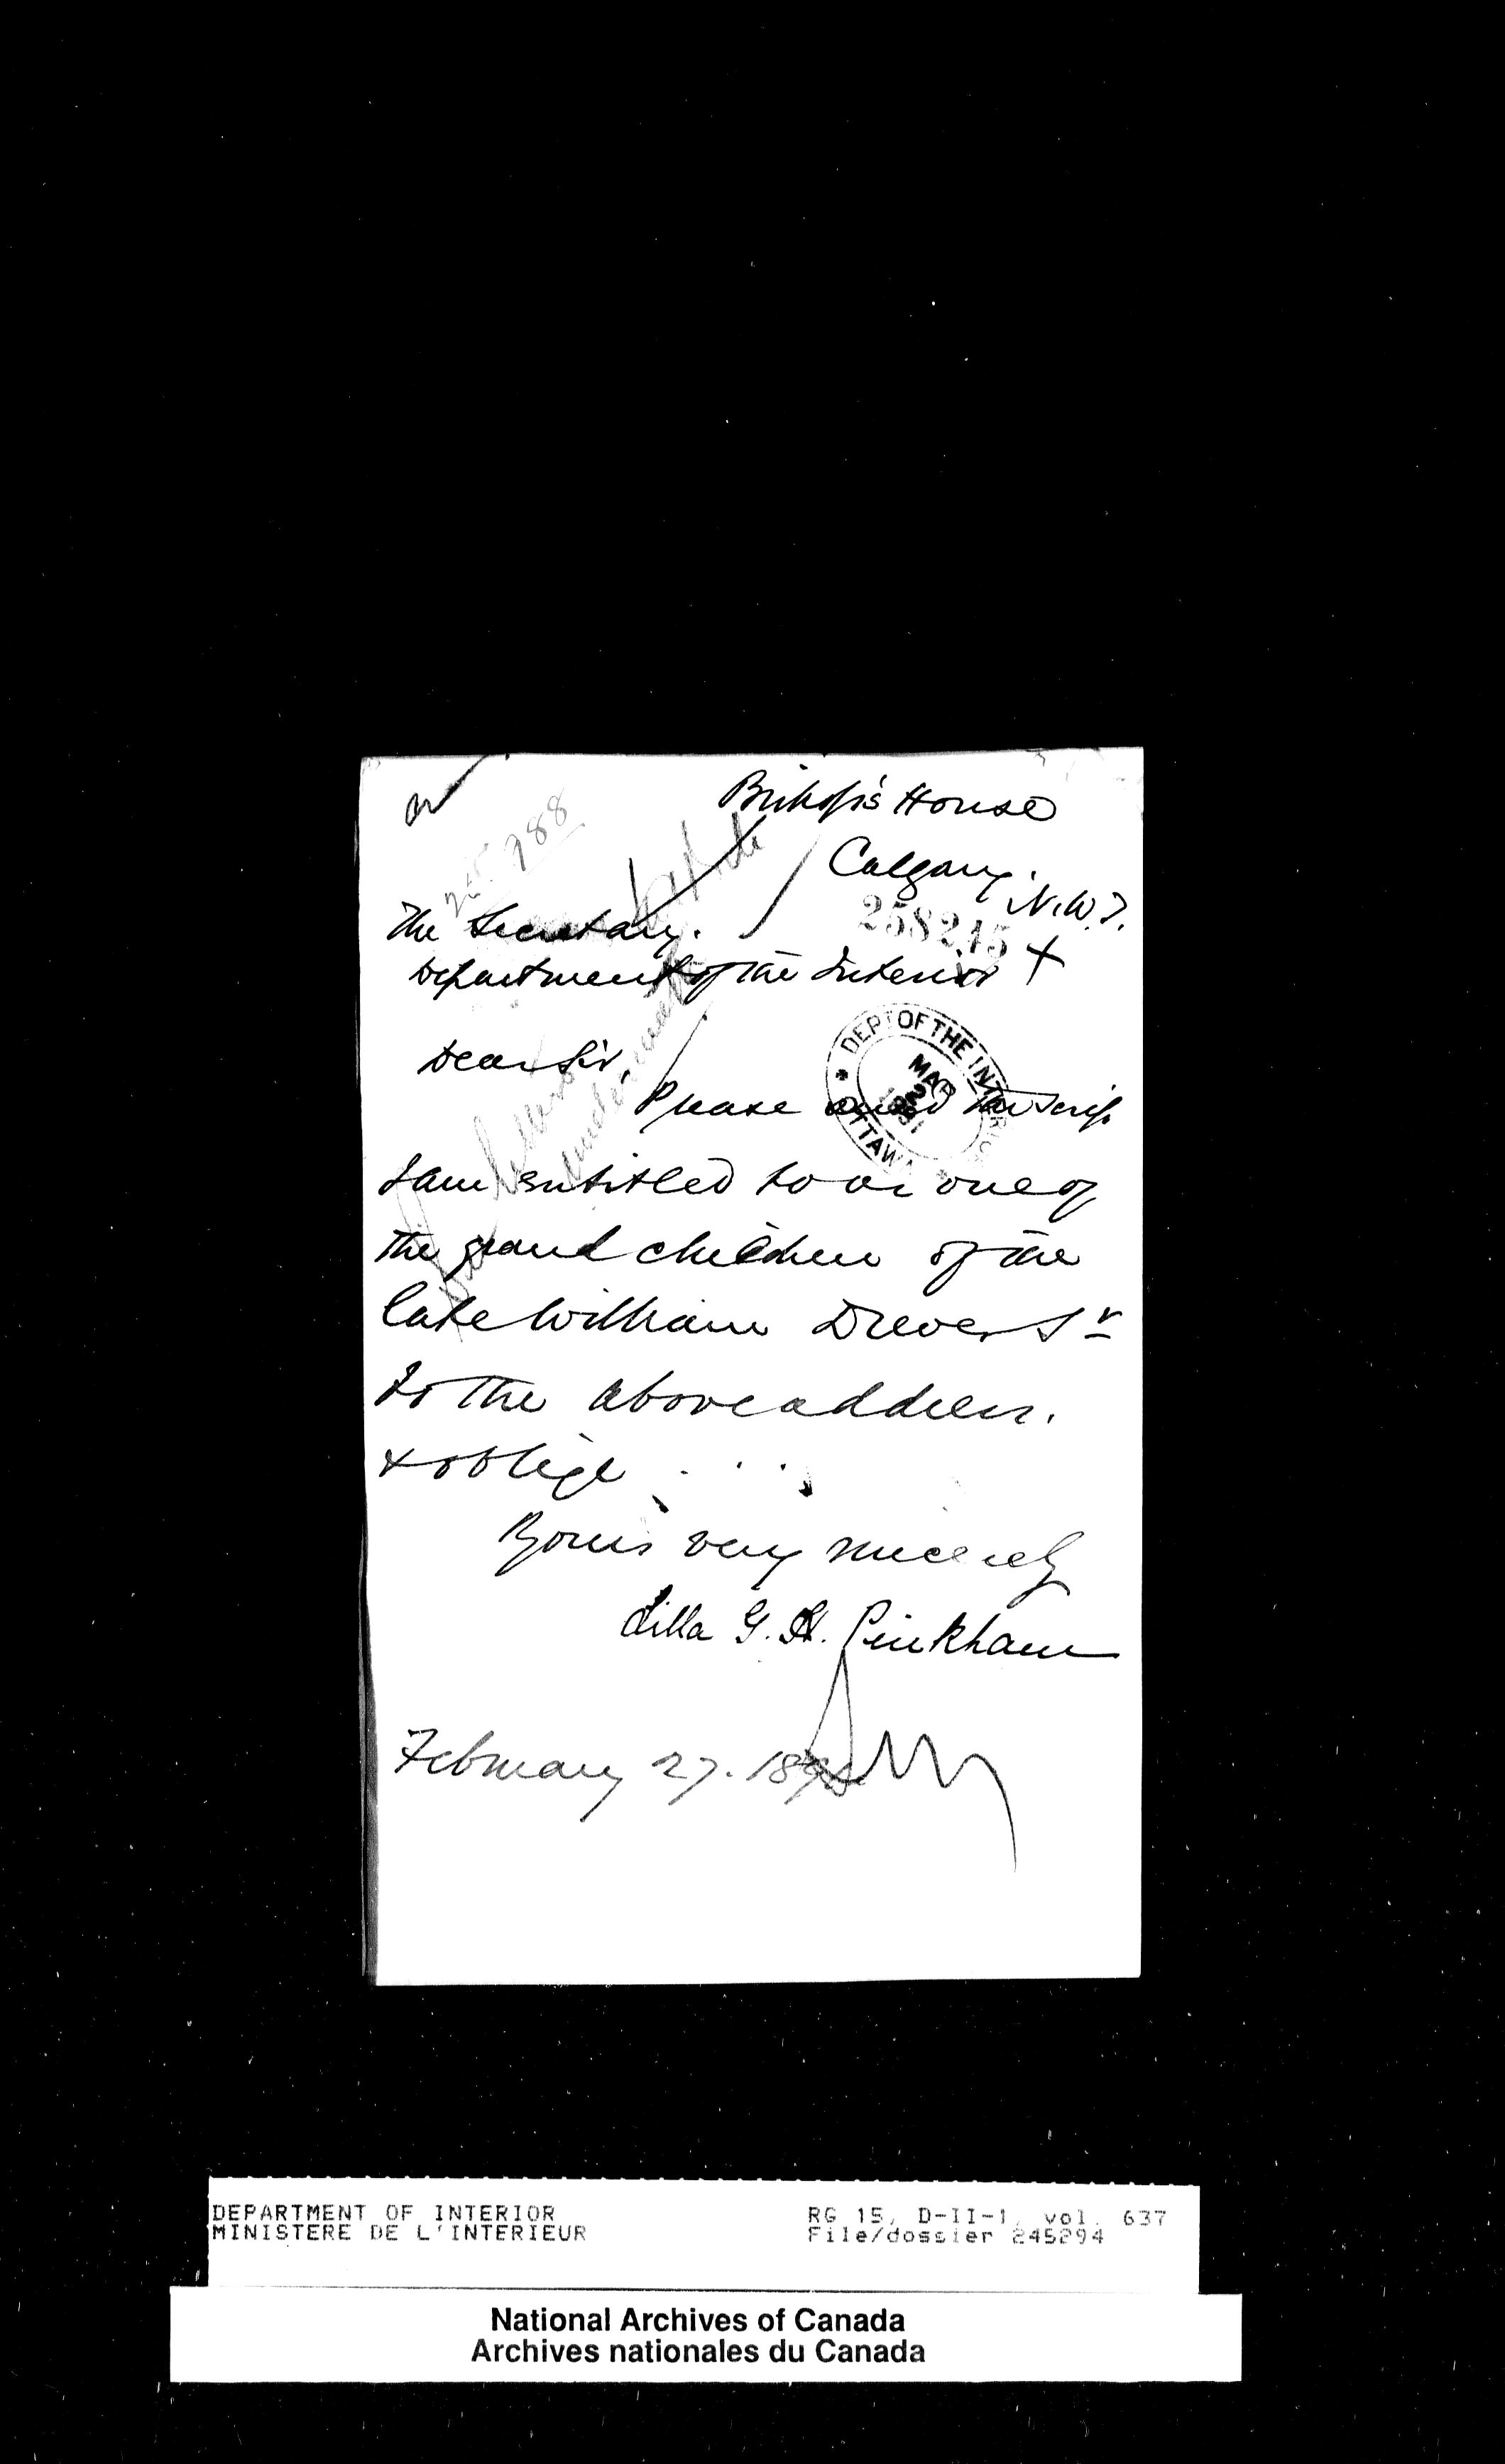 Bishop's House
Calgary.
N.W.T.
258215
788
The Secretary.
Department of the Interior
DEPT OF THE INTERIOR
MAR
1891
OTTAWA
Dear Sir,
Please send the scrip
I am entitled to as one of
the grand children of the
late William Drever Sr
to the above address.
& oblige
Yours very sincerely
Lilla G. H. Pinkham
February 27. 189
DEPARTMENT OF INTERIOR RG 15, D-II-1, vol. 637
MINISTERE DE L'INTERIEUR File/dossier 245294
National Archives of Canada
Archives nationales du Canada